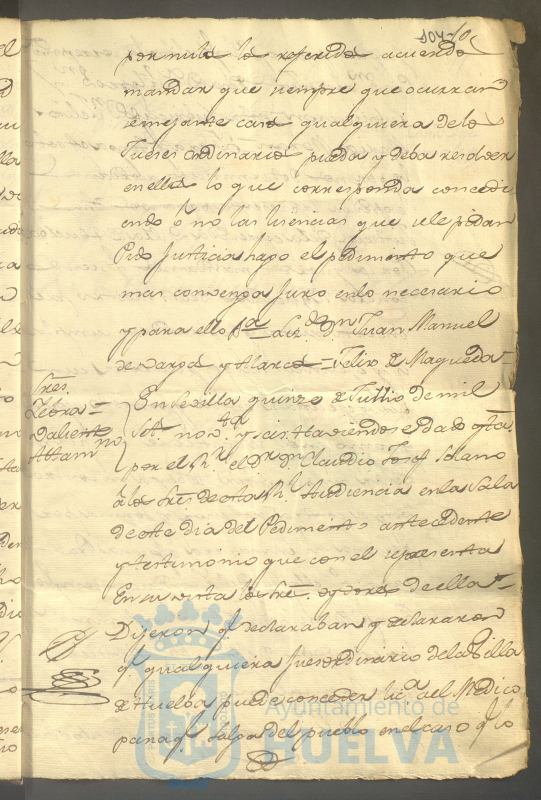 permita lo referido acuerde
mandar que siempre que ocurran
semejante caso qualquiera de los
Jueses ordinarios pueda y deba resolver
en ellos lo que corresponda concedi
endo ô no las lisencias que se le pidan
Pido Justicia hago el pedimento que
mas convenga Juro en lo nesesario
y para ello Lizdo Dn Juan Manuel
de Vargas y Alarcon = Felix de Maqueda =
Sres.
Zebra =
Valiente
Altamno
En Sevilla quinze de Jullio de mil
Settos nobta y sis haviendose dado qta
por el Sr. el Dr. Dn. Claudio Josef Solano
â los Sres. de esta Rl. Audiencia en la Sala
de este dia del Pedimento antecedente
y testimonio que con el representa
En su vista los Sres. oydores de ella =
Dijeron qe. declaraban y declararon
qe. qualquiera Jues ordinario de la Billa
de Huelva puede conceder lica. al Medico
para qe. salga del pueblo en el caso qe. lo
Ayuntamiento de
HUELVA